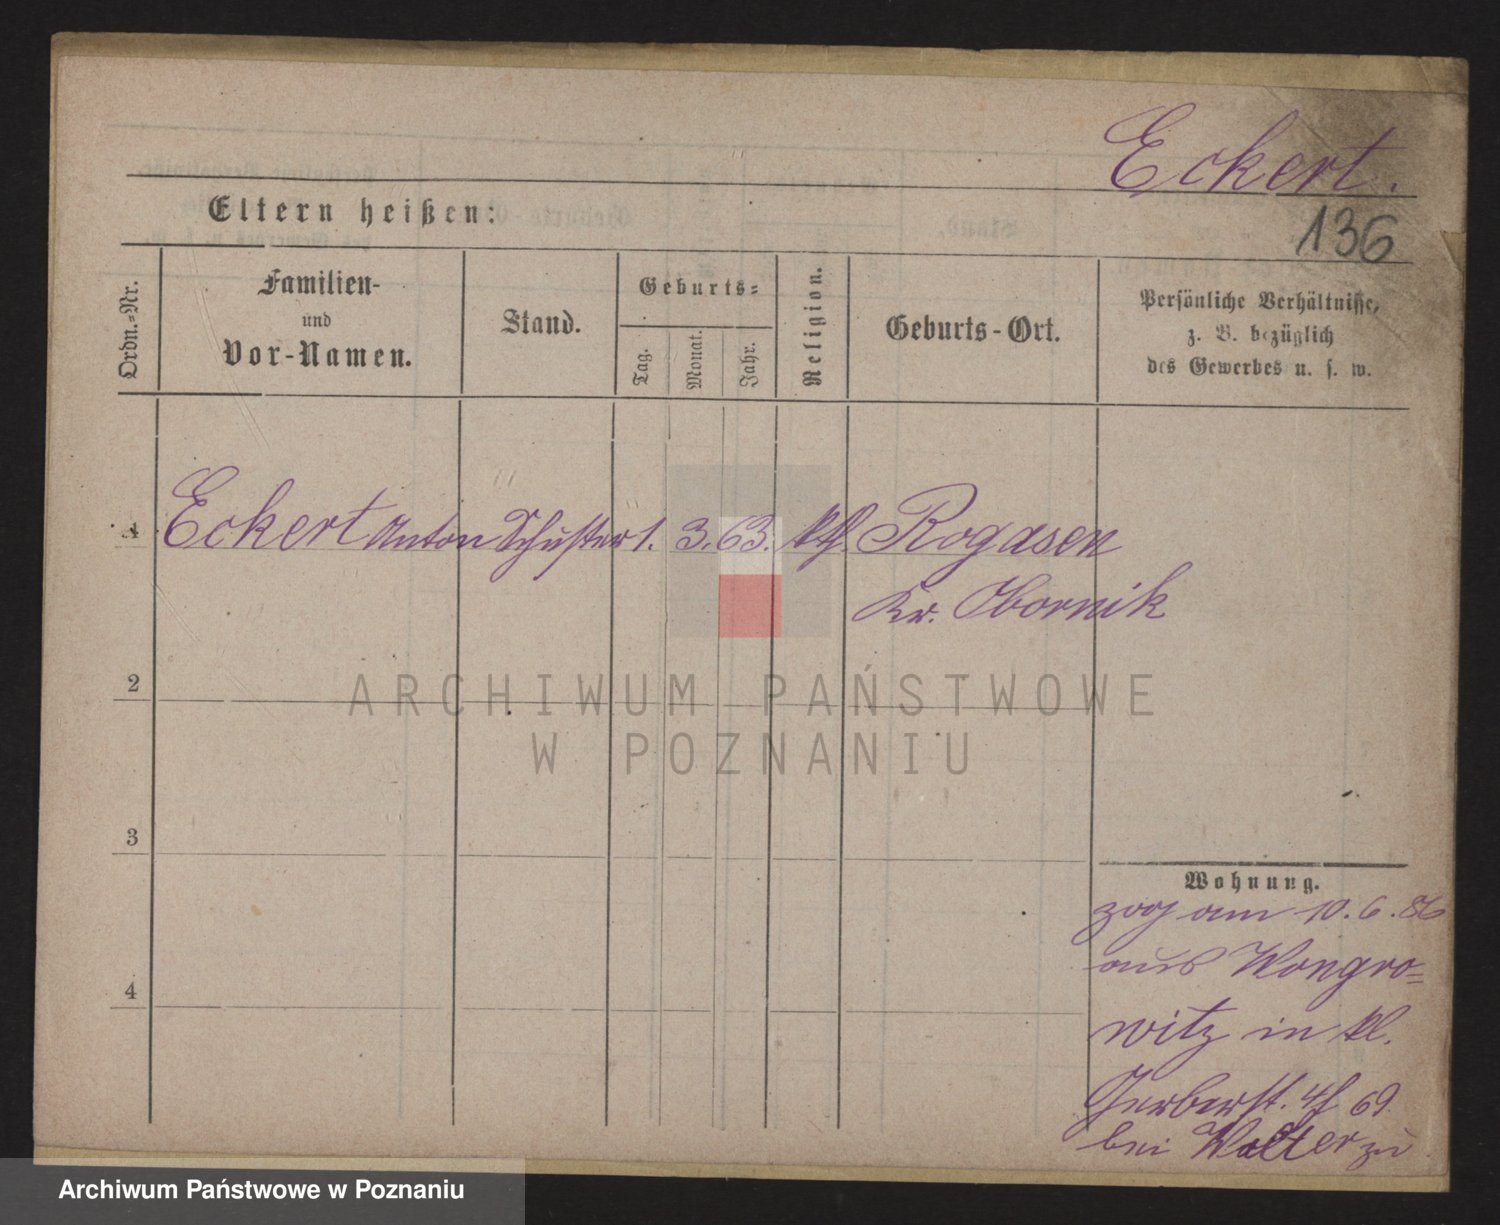 Eckert.
136
Eltern heißen:
Ordn.-Nr.
Familien-
und
Vor-Namen.
Stand.
Geburts-
Tag.
Monat.
Jahr.
Religion.
Geburts-Ort.
Persönliche Verhältnisse,
z. B. bezüglich
des Gewerbes u. s. w.
1 Eckert Anton Schuster 1. 3. 63. kth Rogasen
Kr. Obornik
2
3
4
Wohnung.
zog am 10. 6. 86
aus Wongro-
witz in kl.
Gerberst. 4/69
bei Walter zu
ARCHIWUM PAŃSTWOWE
W POZNANIU
Archiwum Państwowe w Poznaniu